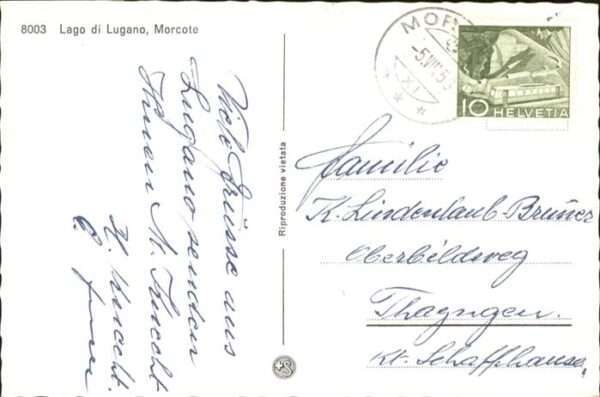 8003 Lago di Lugano, Morcote
Viele Grüsse aus
Lugano senden
Ihnen M. Knecht
H. Knecht.
Riproduzione vietata
MOR
-5.VII.5
XI
10 HELVETIA
Familie
K. Lindenlaub-Bruner
Oberbildweg
Thayngen.
Kt. Schaffhausen